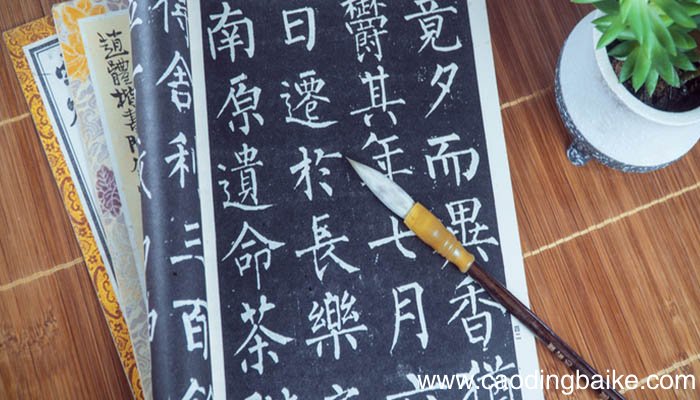 竟夕而異香猶
鬱其年七月六
日遷於長樂
南原遺命茶
得舍利三百
趙體楷書
www.caodingbaike.com